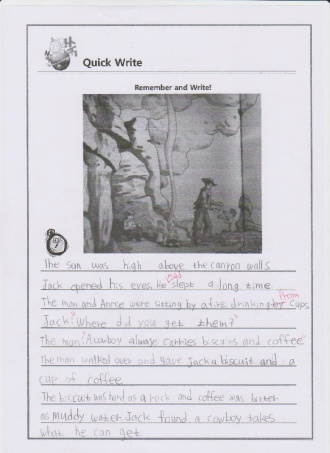 Quick Write
Remember and Write!
The sun was high above the canyon walls
Jack opened his eyes. He slept a long time
The man and Annie were sitting by a fire drinking from cups
Jack: Where did you get them?
The man: A cowboy always carries biscuits and coffee.
The man walked over and gave Jack a biscuit and a
cup of coffee
The biscuit was hard as a rock and coffee was bitter
as muddy water Jack found a cowboy takes
what he can get